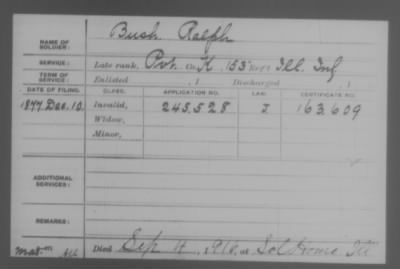 Bush Ralph
NAME OF SOLDIER:
SERVICE: Late rank, Pvt. Co. K, 153 Reg't Ill. Inf
TERM OF SERVICE: Enlisted , 1 Discharged , 1
DATE OF FILING. CLASS. APPLICATION NO. LAW. CERTIFICATE NO.
1877 Dec. 10. Invalid, 245.528 J 163.609
Widow,
Minor,
ADDITIONAL SERVICES:
REMARKS:
Died Sep 4, 191 , at Sol Home Ill